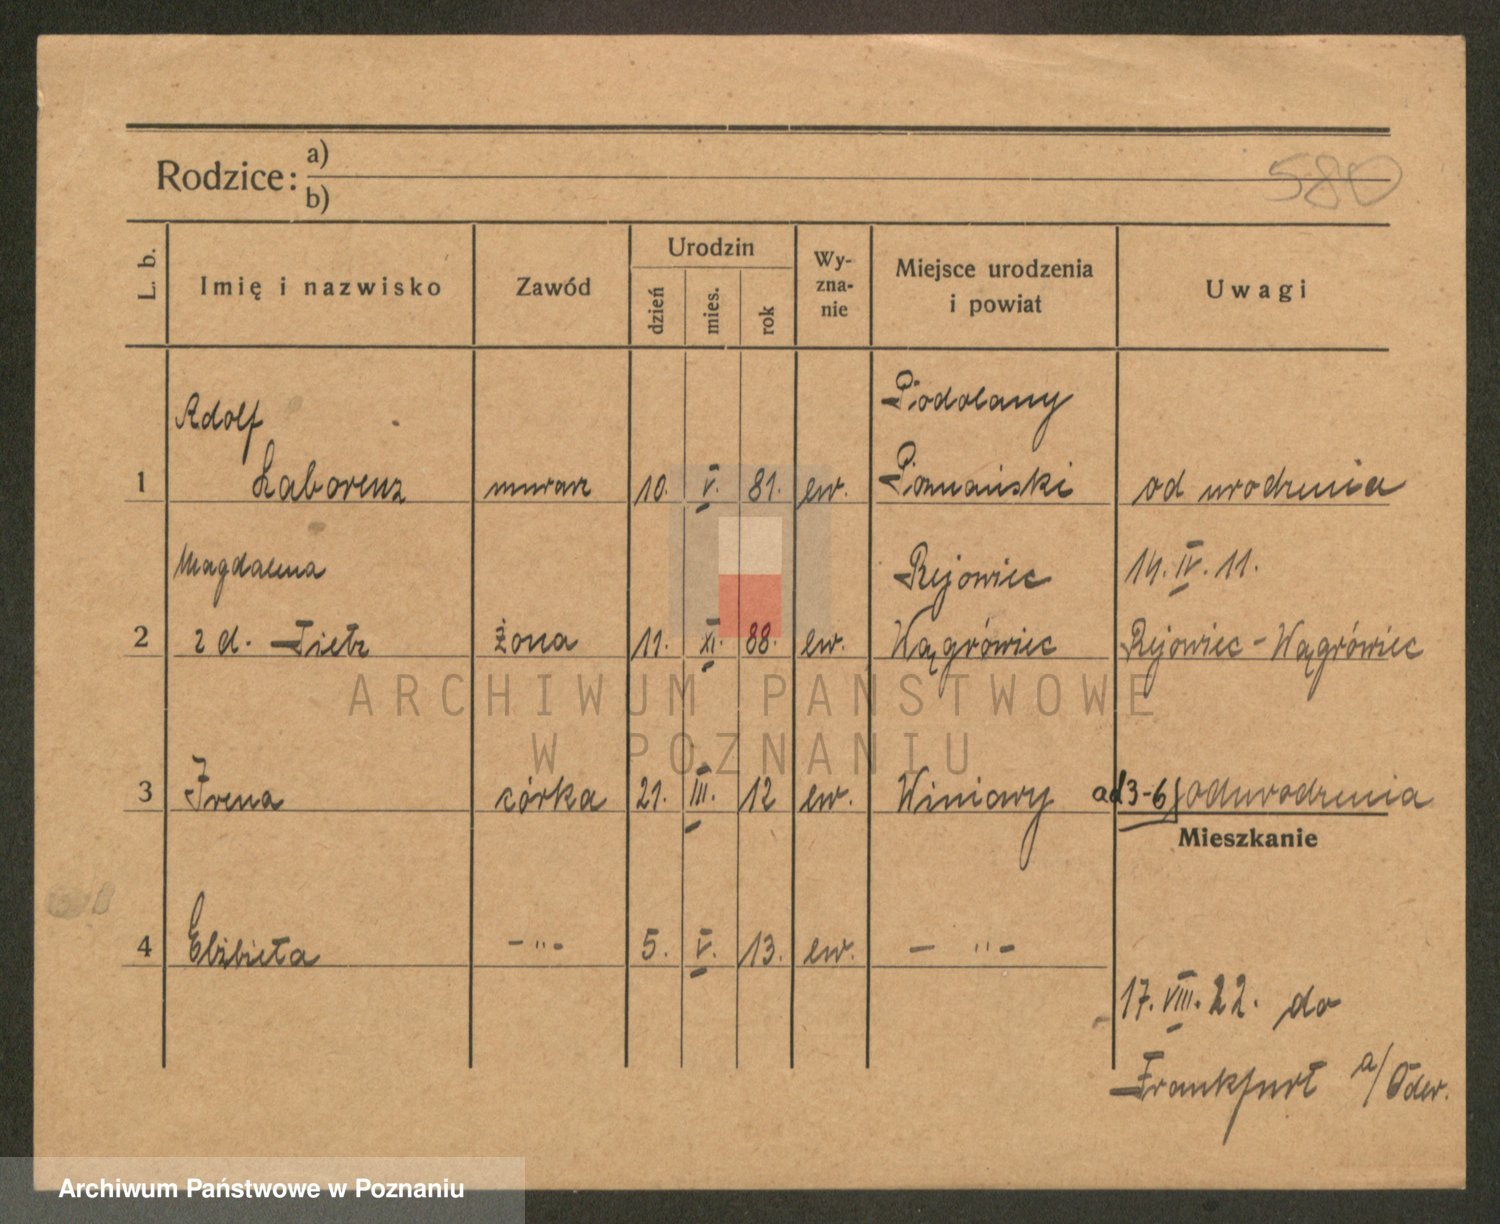 Rodzice: a)
b)
580
L. b. Imię i nazwisko Zawód Urodzin dzień mies. rok Wy-zna-nie Miejsce urodzenia i powiat Uwagi
Adolf Podolany
1 Laborenz murarz 10. V. 81. ew. Poznański od urodzenia
Magdalena Rejowiec 14. IV. 11.
2 z d. Tietz żona 11. XI. 88. ew. Wągrówiec Rejowiec - Wągrówiec
3 Irena córka 21. III. 12 ew. Winiary ad 3-6 od urodzenia
Mieszkanie
4 Elżbieta - " - 5. V. 13. ew. - " -
17. VIII. 22. do
Frankfurt a/Oder.
ARCHIWUM PAŃSTWOWE
W POZNANIU
Archiwum Państwowe w Poznaniu